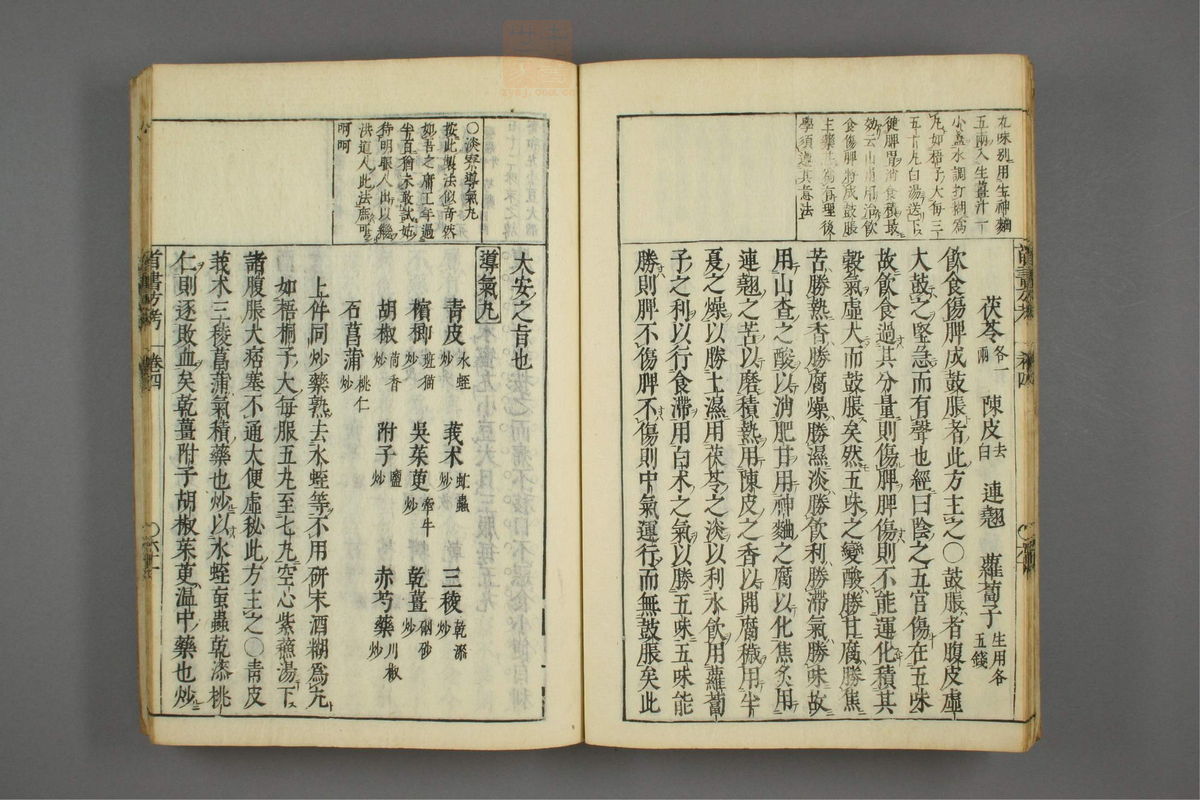 右味別用生神麯
五兩入生薑汁一
小盞水調打糊爲
丸如梧子大每三
五十丸白湯送下
健脾胃消食積最
効云山
食傷脾將成鼓脹
上藥
學須
其意法
茯苓各一兩 陳皮去白 連翹 蘿蔔子生用各五錢
飲食傷脾成鼓脹者此方主之○鼓脹者腹皮虛
大鼓之堅急而有聲也經曰陰之五宮傷在五味
故飲食過其分量則傷脾脾傷則不能運化積其
穀氣虛大而鼓脹矣然五味之變酸勝甘腐勝焦
苦勝熱香勝腐燥勝濕淡勝飲利勝滯氣勝味故
用山查之酸以消肥甘用神麯之腐以化焦炙用
連翹之苦以磨積熱用陳皮之香以開腐穢用半
夏之燥以勝土濕用茯苓之淡以利水飲用蘿蔔
子之利以行食滯用白朮之氣以勝五味五味能
勝則脾不傷脾不傷則中氣運行而無鼓脹矣此
首書方考 卷四
○淡寮導氣丸
按此製法似奇然
如吾之庸工年過
半百猶未敢試姑
待明眼人出以繼
洪道人此法
呵呵
大安之旨也
導氣丸
青皮水蛭炒 莪朮虻蟲炒 三稜乾漆炒
檳榔斑猫炒 吳茱萸牽牛炒 乾薑硇砂炒
胡椒茴香炒 附子鹽炒 赤芍藥川椒炒
石菖蒲桃仁炒
上件同炒藥熟去水蛭等不用研末酒糊爲丸
如梧桐子大每服五丸至七丸空心紫蘇湯下
諸腹脹大痞塞不通大便虛秘此方主之○青皮
莪朮三稜菖蒲氣積藥也炒以水蛭虻蟲乾漆桃
仁則逐敗血矣乾薑附子胡椒茱萸溫中藥也炒
首書方考 卷四